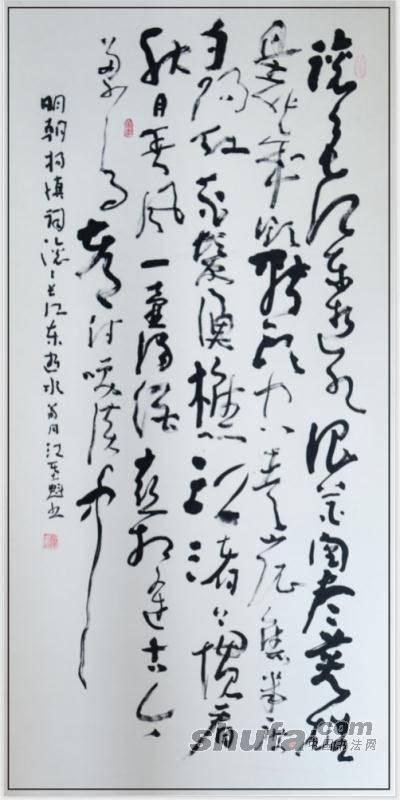 滚々长江东逝水浪花淘尽英雄
是非成败转头空青山依旧在几度
夕阳红白发渔樵江渚上惯看
秋月春风一壶浊酒喜相逢古今
多少事都付笑谈中
明朝杨慎词滚々长江东逝水 月江 书
shufa.com
中国书法网